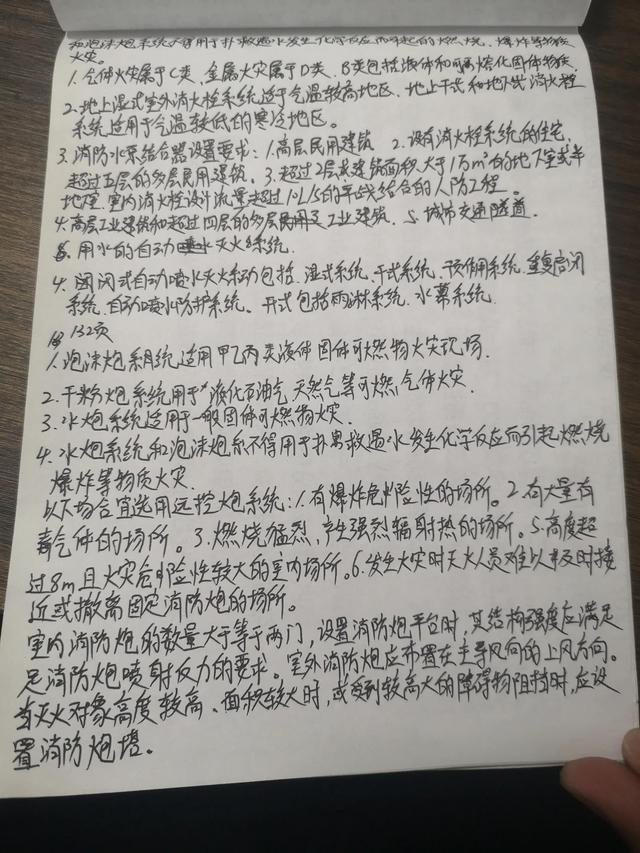 和泡沫炮系统不得用于扑救遇水发生化学反应而引起的燃烧、爆炸等物质
火灾。
1.气体火灾属于C类、金属火灾属于D类、B类包括液体和可熔化固体物质
2.地上湿式室外消火栓系统适于气温较高地区、地上干式和地下式消火栓
系统适用于气温较低的寒冷地区。
3.消防水泵结合器设置要求:1.高层民用建筑 2.设有消火栓系统的住宅,
超过五层的多层民用建筑、3.超过2层或建筑面积大于1万m²的地下室或半
地下室、室内消火栓设计流量超过10L/S的平战结合的人防工程。
4.高层工业建筑和超过四层的多层工业建筑、5.城市交通隧道
6.用水的自动灭火系统.
4.闭式自动喷水灭火系统包括、湿式系统、干式系统、预作用系统、重复启闭
系统、自动喷水防护系统。开式包括雨淋系统、水幕系统.
132页
1.泡沫炮系统适用甲乙丙类液体固体可燃物火灾现场.
2.干粉炮系统用于液化石油气、天然气等可燃气体火灾.
3.水炮系统适用于一般固体可燃物火灾.
4.水炮系统和泡沫炮系不得用于扑救遇水发生化学反应而引起燃烧
爆炸等物质火灾.
以下场合宜选用远控炮系统:1.有爆炸危险性的场所。2.有大量有
毒气体的场所。3.燃烧猛烈,产生强烈辐射热的场所。5.高度超
过8m且火灾危险性较大的室内场所。6.发生火灾时灭火人员难以及时接
近或撤离固定消防炮的场所。
室内消防炮的数量大于等于两门,设置消防炮平台时,其结构强度应满足
足消防炮喷射反力的要求。室外消防炮应布置在主导风向的上风方向。
当灭火对象高度较高、面积较大时,或受到较高大的障碍物阻挡时,应设
置消防炮塔。